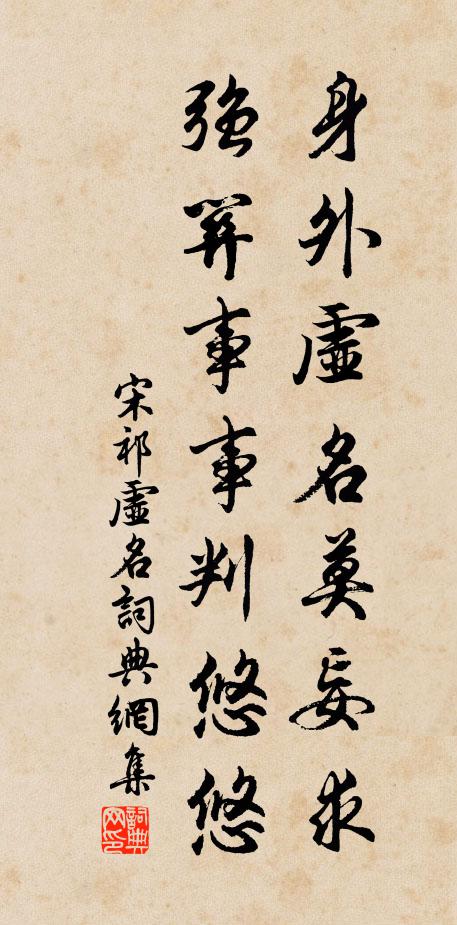 身外虛名莫妄求
強羿事事判悠悠
宋祁虛名詞典網集
詞典网印